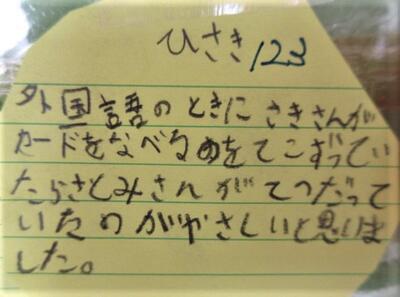 ひさき 123
外国語のときにさきさんが
カードをなべるめをてこずってい
たらさとみさんがてつだって
いたのがやさしいと思いま
した。